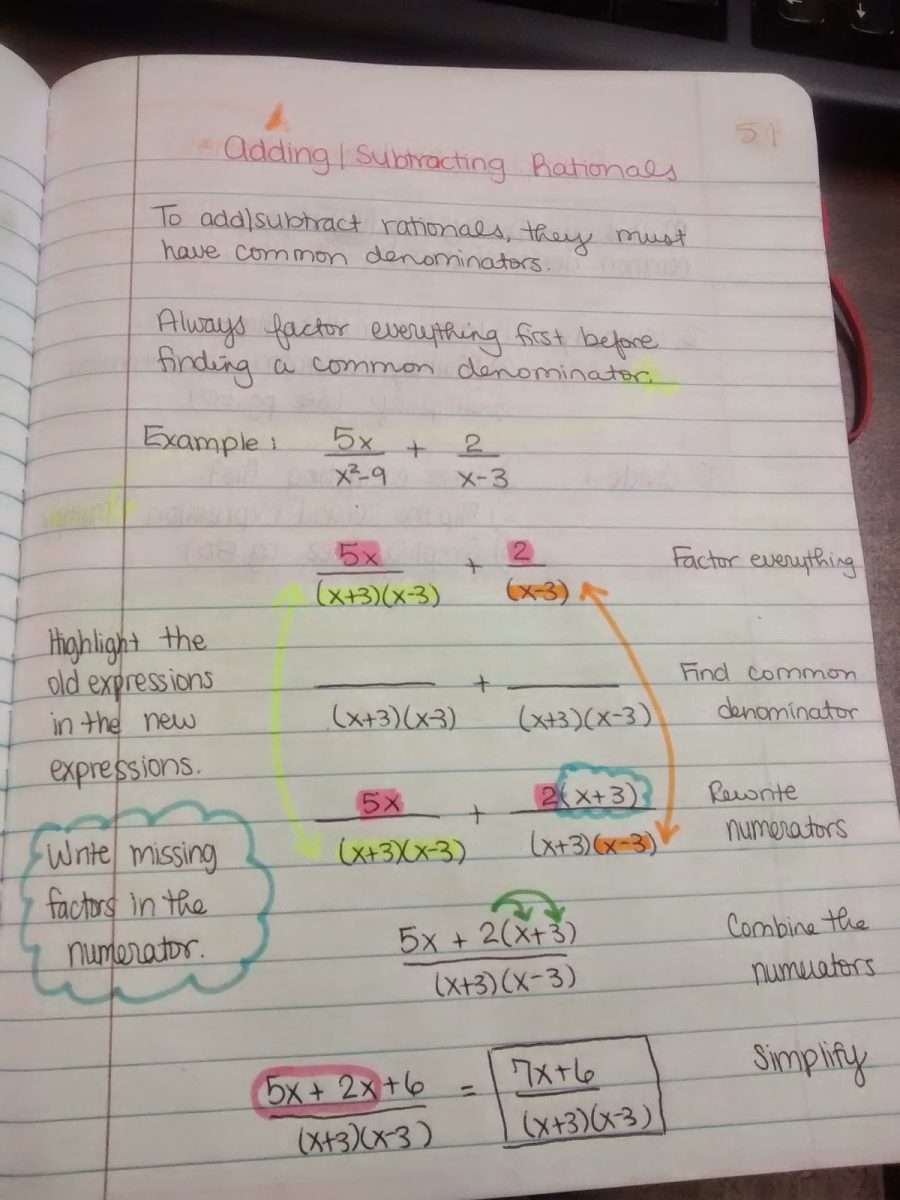 51
Adding/Subtracting Rationals
To add/subtract rationals, they must
have common denominators.
Always factor everything first before
finding a common denominator.
Example: 5x/x²-9 + 2/x-3
5x/(x+3)(x-3) + 2/(x-3) Factor everything
Highlight the
old expressions
in the new
expressions.
__/(x+3)(x-3) + __/(x+3)(x-3) Find common
denominator
5x/(x+3)(x-3) + 2(x+3)/(x+3)(x-3) Rewrite
numerators
Write missing
factors in the
numerator.
5x + 2(x+3)/(x+3)(x-3) Combine the
numerators
5x + 2x+6/(x+3)(x-3) = 7x+6/(x+3)(x-3) Simplify